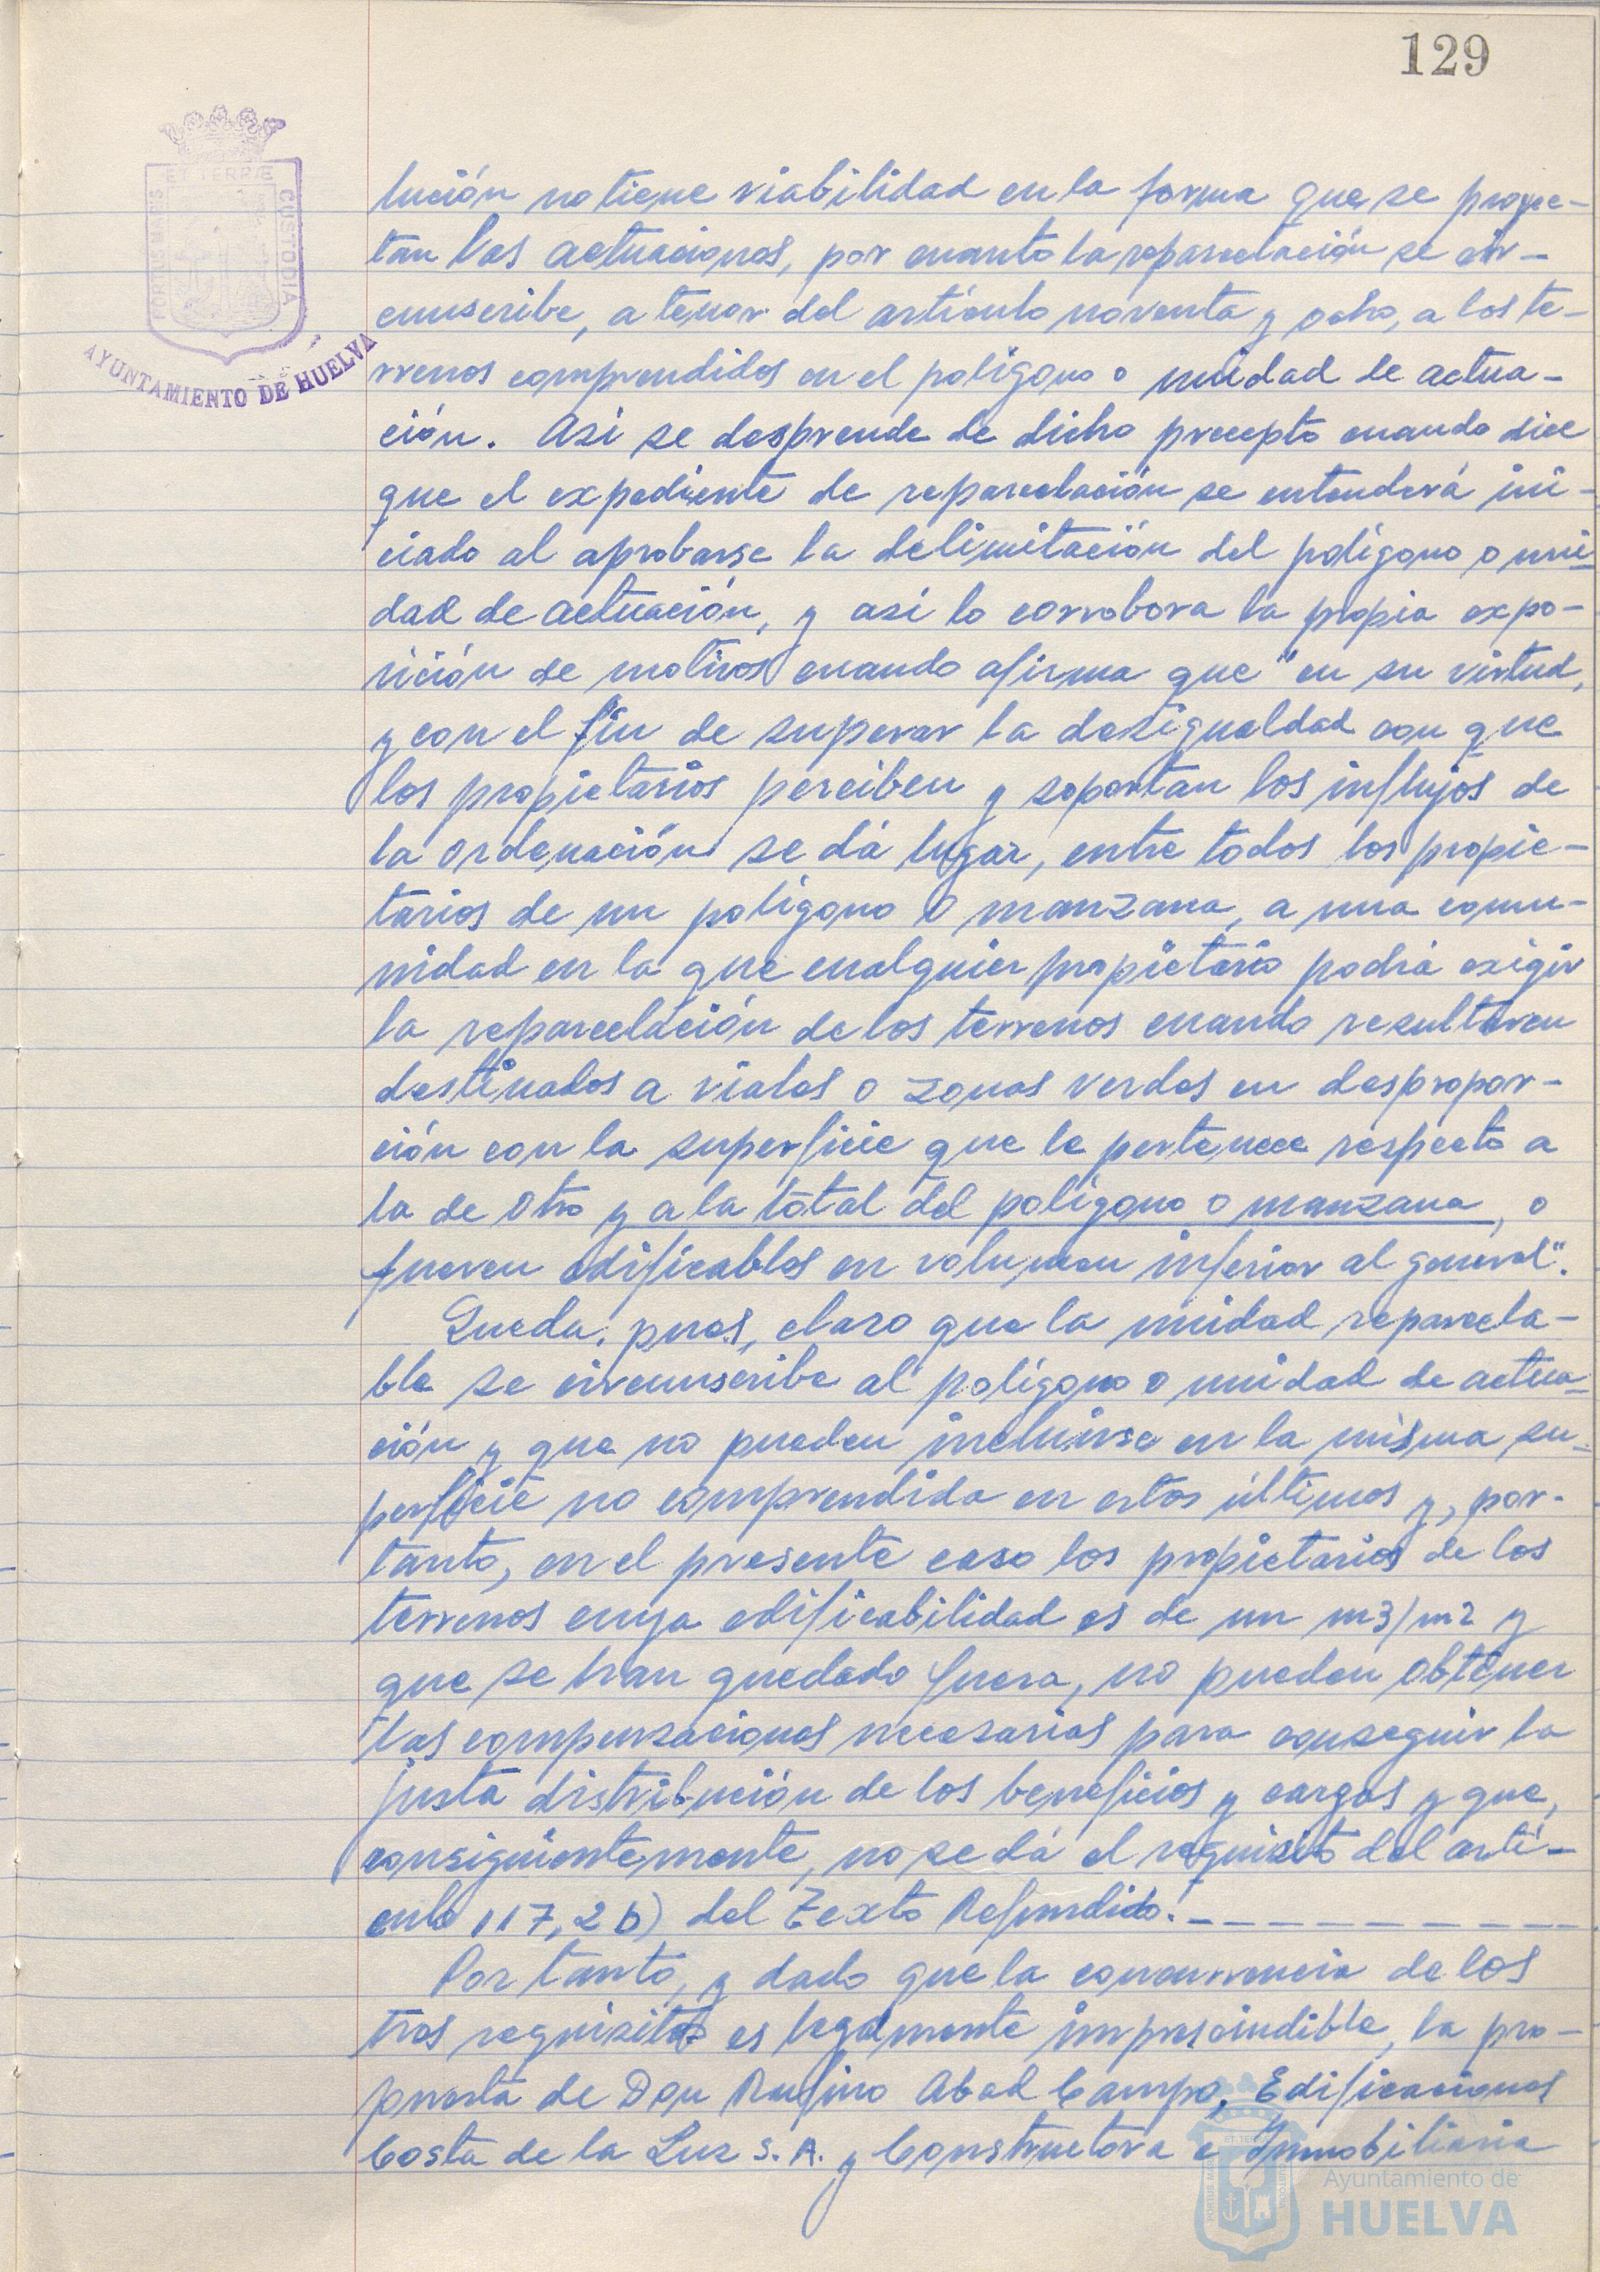 129
PORTUS MARIS
ET TERRÆ
CUSTODIA
AYUNTAMIENTO DE HUELVA
lución no tiene viabilidad en la forma que se proyec-
tan las actuaciones, por cuanto la reparcelación se cir-
cunscribe, a tenor del artículo noventa y ocho, a los te-
rrenos comprendidos en el polígono o unidad de actua-
ción. Así se desprende de dicho precepto cuando dice
que el expediente de reparcelación se entenderá ini-
ciado al aprobarse la delimitación del polígono o uni-
dad de actuación, y así lo corrobora la propia expo-
sición de motivos cuando afirma que "en su virtud,
y con el fin de superar la desigualdad con que
los propietarios perciben y soportan los influjos de
la Ordenación se dá lugar, entre todos los propie-
tarios de un polígono o manzana, a una comu-
nidad en la que cualquier propietario podrá exigir
la reparcelación de los terrenos cuando resultaren
destinados a viales o zonas verdes en despropor-
ción con la superficie que le pertenece respecto a
la de otro y a la total del polígono o manzana, o
fueren edificables en volumen inferior al general".
Queda, pues, claro que la unidad reparcela-
ble se circunscribe al polígono o unidad de actua-
ción y que no pueden incluirse en la misma su-
perficie no comprendida en estos últimos y, por-
tanto, en el presente caso los propietarios de los
terrenos cuya edificabilidad es de un m3/m2 y
que se han quedado fuera, no pueden obtener
las compensaciones necesarias para conseguir la
justa distribución de los beneficios y cargas y que,
consiguientemente, no se dá el requisito del artí-
culo 117, 2 b) del Texto Refundido.
Por tanto, y dado que la concurrencia de los
tres requisitos es legalmente imprescindible, la pro-
puesta de Don Rufino Abad Campo, Edificaciones
Costa de la Luz S. A. y Constructora e Inmobiliaria
Ayuntamiento de
HUELVA